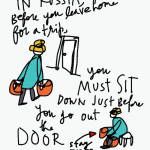 IN RUSSIA
Before you leave home
for a trip,
you
MUST SIT
DOWN Just Before
you go out
the
DOOR
stay